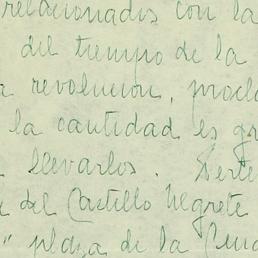 relacionados con la
del tiempo de la
revolución, procl
la cantidad es gr
llevarlos.
del Castillo Negrete
" plaza de la